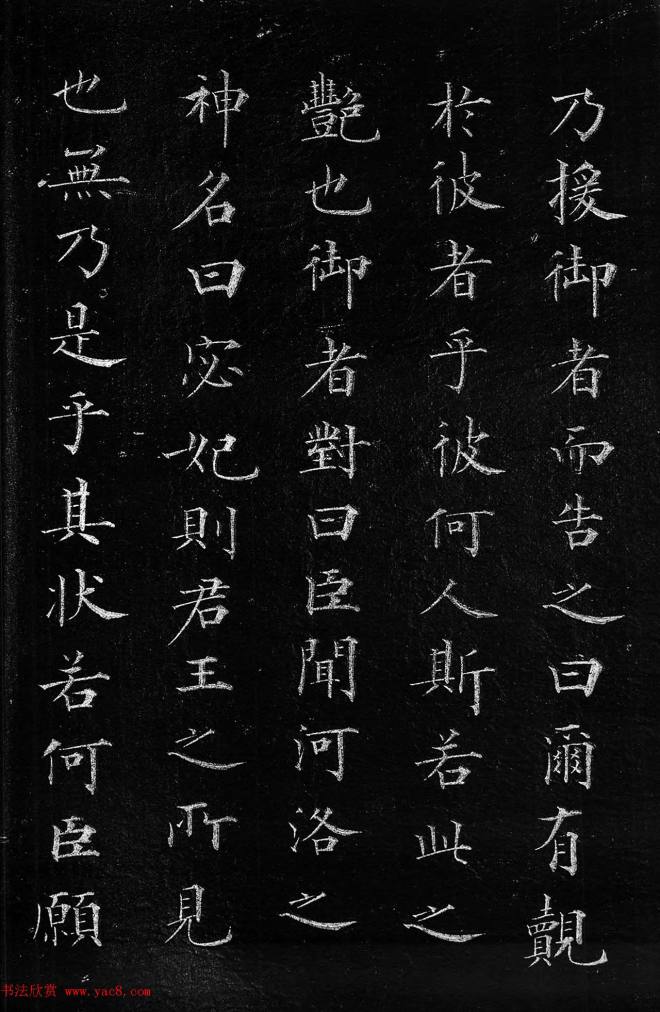 乃援御者而告之曰爾有覿
於彼者乎彼何人斯若此之
豔也御者對曰臣聞河洛之
神名曰宓妃則君王之所見
也無乃是乎其状若何臣願
书法欣赏 www.yac8.com